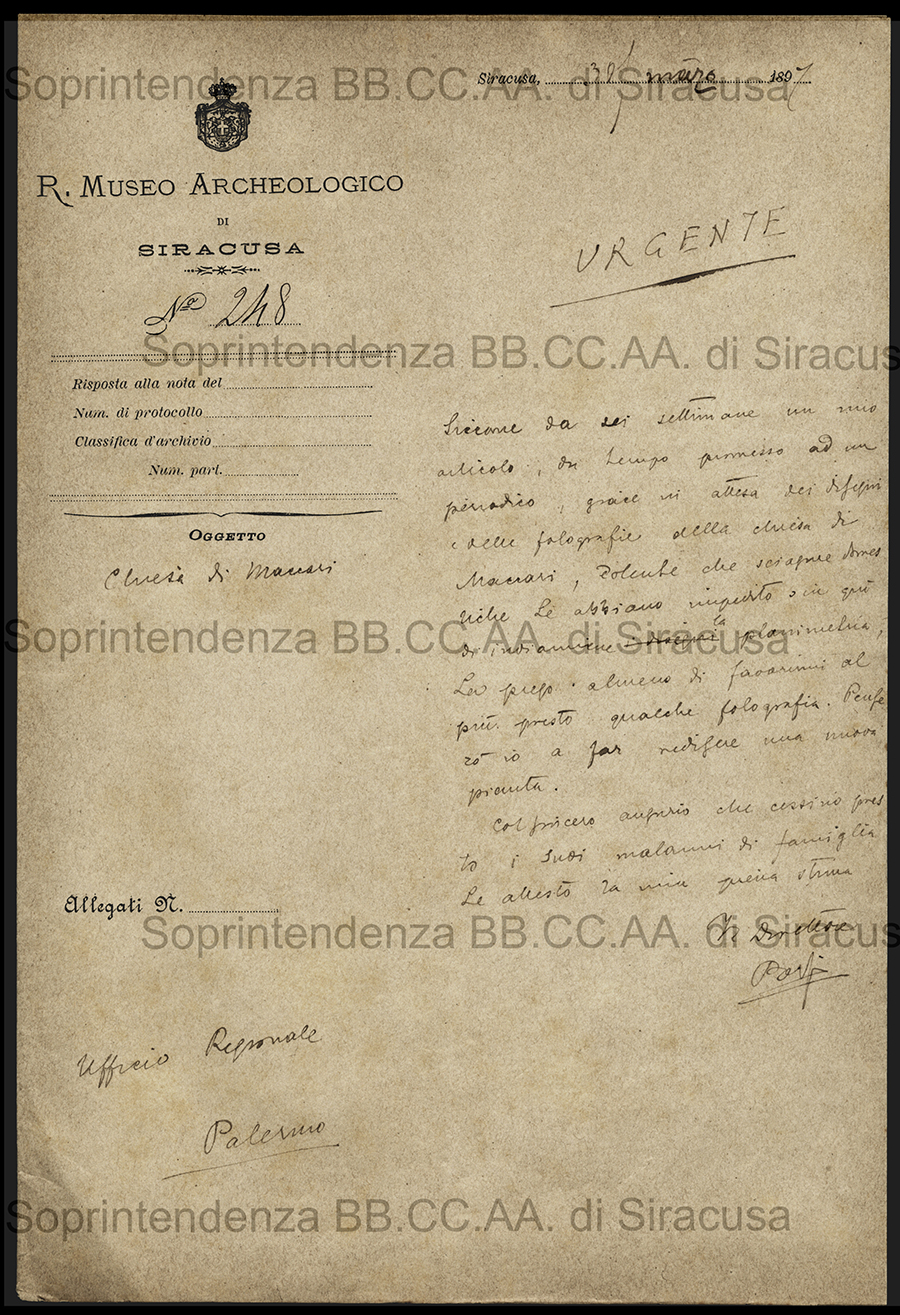 Siracusa, 30 marzo 1897
R. MUSEO ARCHEOLOGICO
DI
SIRACUSA
URGENTE
Nº 248
Risposta alla nota del
Num. di protocollo
Classifica d'archivio
Num. part.
OGGETTO
Chiesa di Maccari
Siccome da sei settimane un mio
articolo, da tempo promesso ad un
periodico, giace in attesa dei disegni
e delle fotografie della chiesa di
Maccari, dolente che sciagure domes
tiche Le abbiano impedito sin qui
di indiarmene i disegni la planimetria,
La prego almeno di favorirmi al
più presto qualche fotografia. Pense
rò io a far redigere una nuova
pianta.
Col sincero augurio che cessino pres
to i Suoi malanni di famiglia
Le attesto la mia piena stima
Il Direttore
Orsi
Allegati N.
Ufficio Regionale
Palermo
Soprintendenza BB.CC.AA. di Siracusa
Soprintendenza BB.CC.AA. di Siracus
Soprintendenza BB.CC.AA. di Siracusa
Soprintendenza BB.CC.AA. di Siracus
Soprintendenza BB.CC.AA. di Siracusa